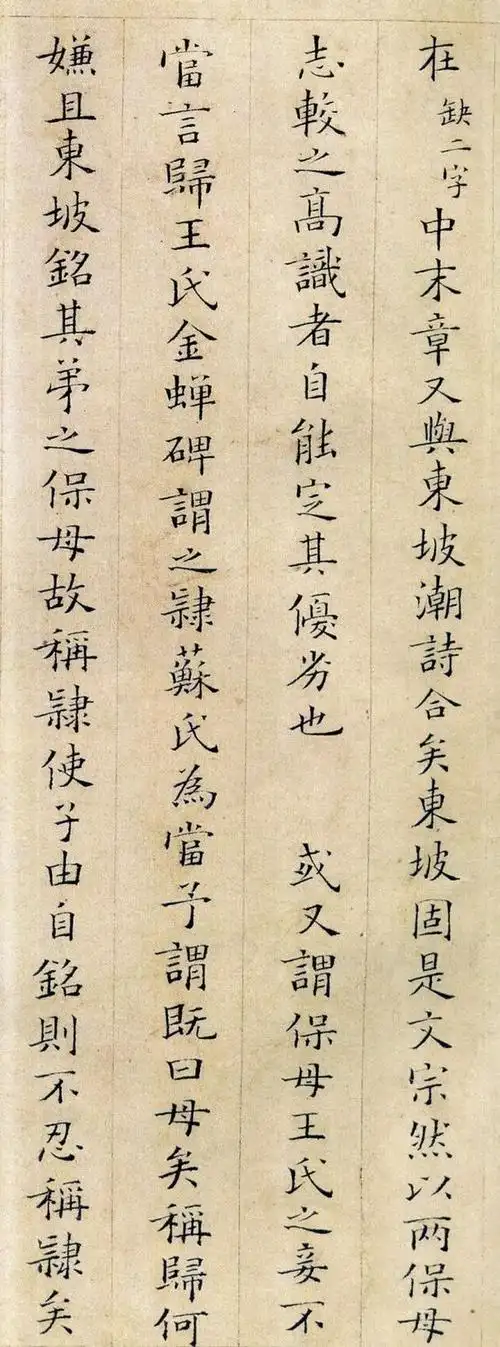 在缺二字中末章又與東坡潮詩合矣東坡固是文宗然以兩保母
志較之高識者自能定其優劣也 或又謂保母王氏之妾不
當言歸王氏金蟬碑謂之隸蘇氏為當予謂既曰母矣稱歸何
嫌且東坡銘其弟之保母故稱隸使子由自銘則不忍稱隸矣